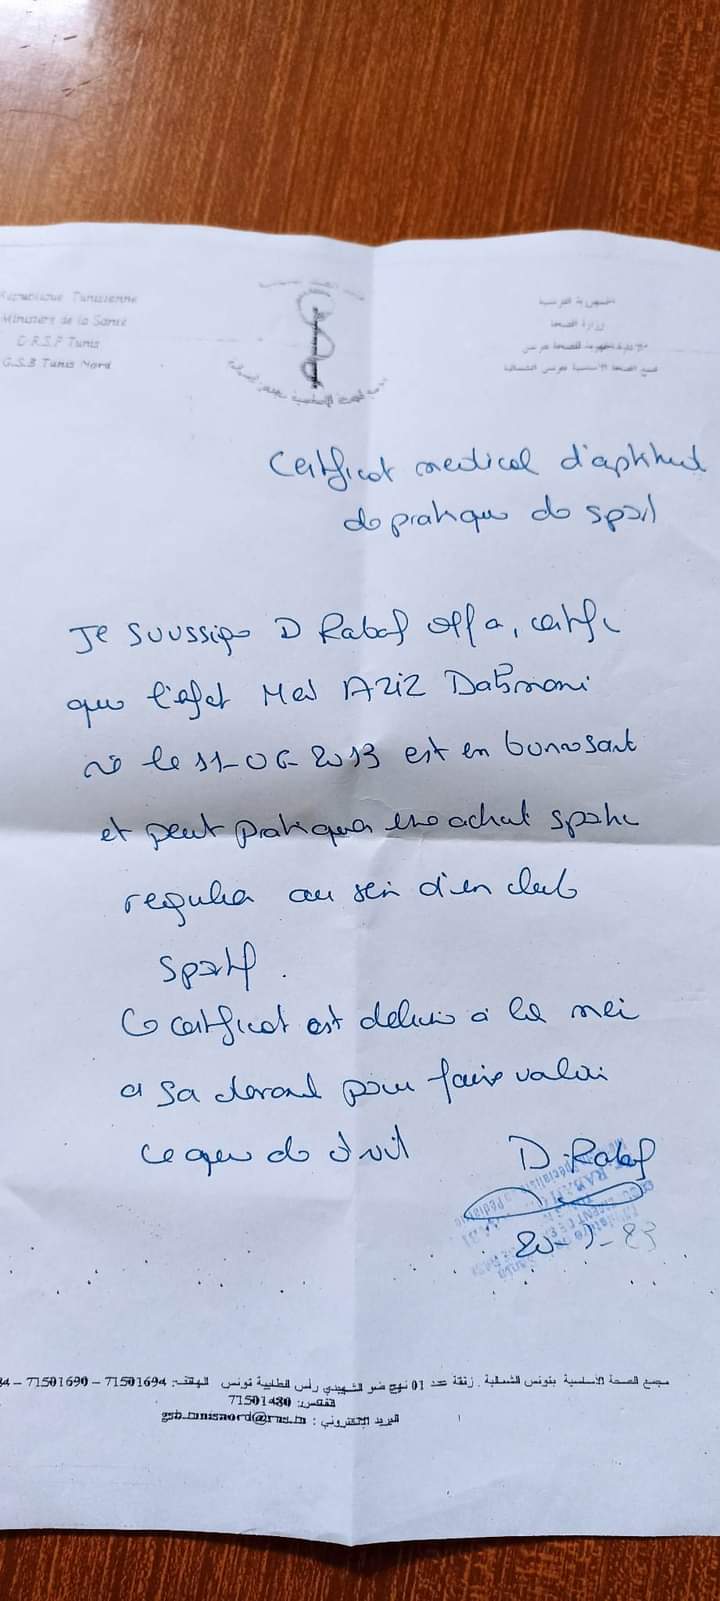 République Tunisienne
Ministère de la Santé
D.R.S.P Tunis
G.S.B Tunis Nord
الجمهورية التونسية
وزارة الصحة
مجمع الصحة الأساسية بتونس الشمالية
Certificat medical d'aptitud
de pratique de sport
Je soussigne D Rabaf Olfa, certifie
que l'enfat Med AZIZ Dahmani
né le 11-06-2013 est en bonne sant
et peut pratiquer une activit sportive
regulier au sein d'un club
sportif.
Ce certificat est delivré à la
a sa demand pour faire valoir
ce que de droit
D. Rabaf
مجمع الصحة الأساسية بتونس الشمالية. زنقة عدد 01 نهج ضو الشهيدي رأس الطابية تونس الهاتف: 71501694 – 71501690 –
الفاكس: 71501480
البريد الإلكتروني : gsb.tunisnord@rns.tn